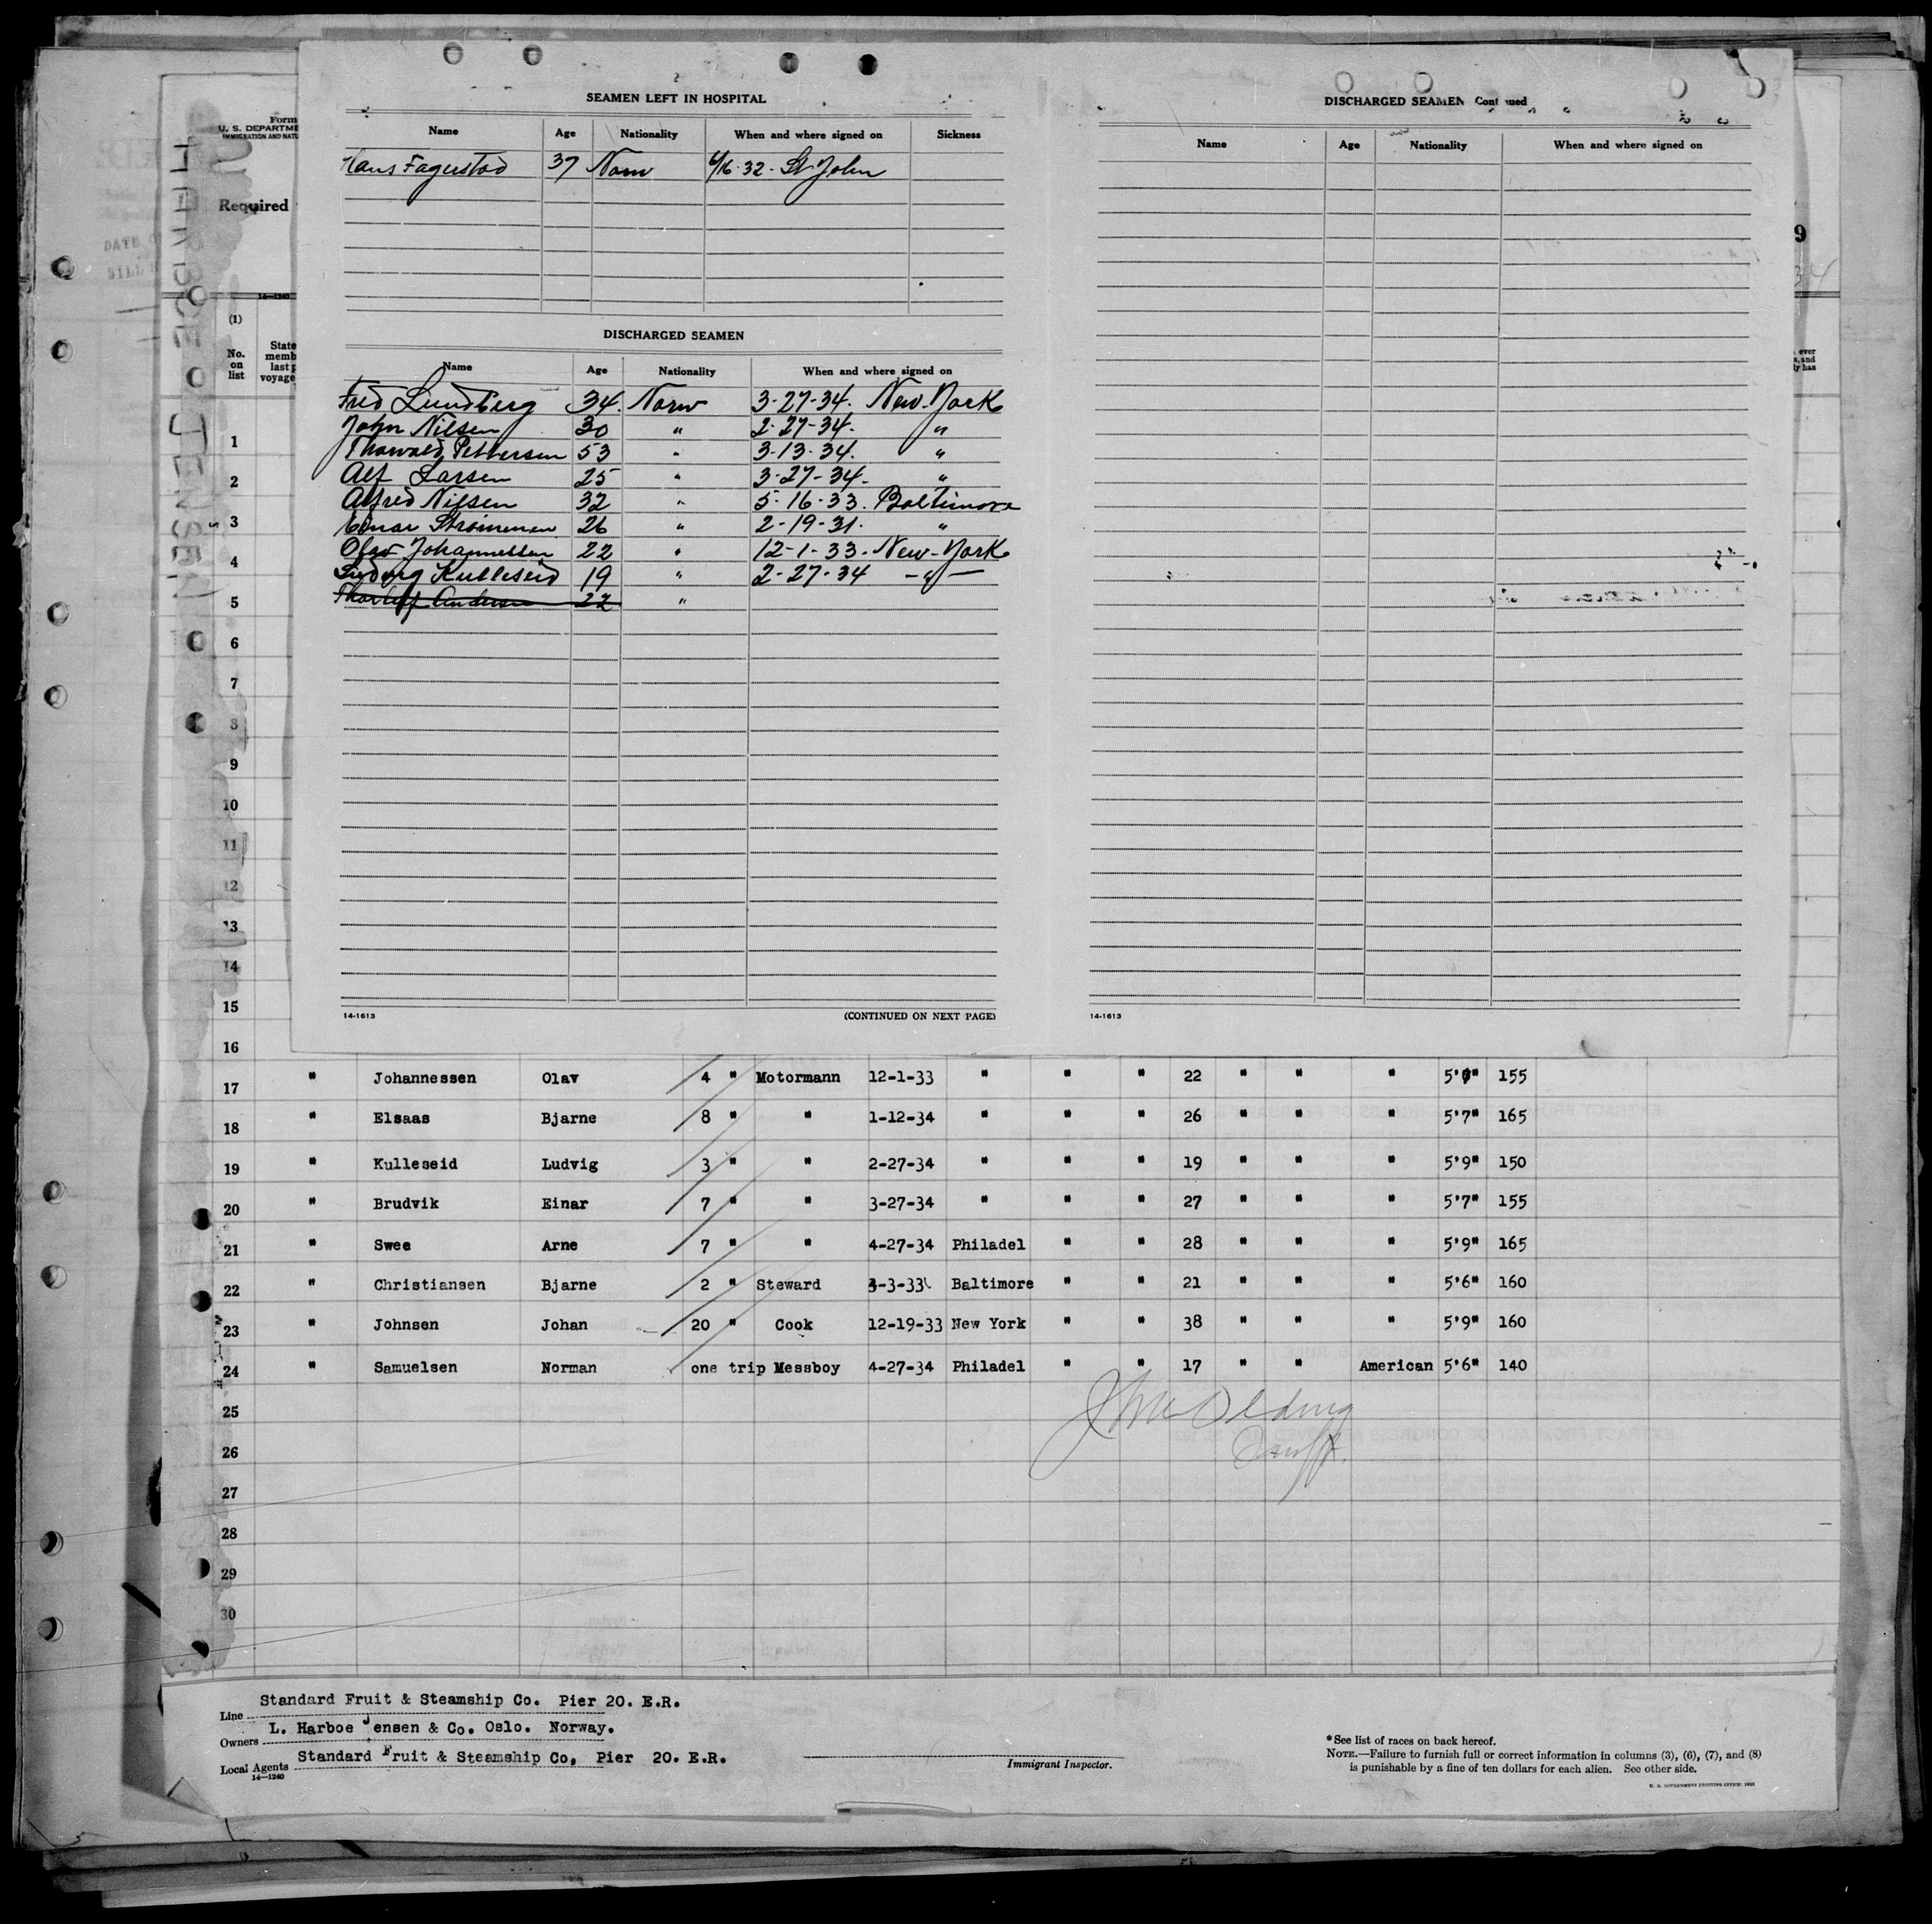 SEAMEN LEFT IN HOSPITAL
Name Age Nationality When and where signed on Sickness
Hans Fagerstad 37 Norw 6/16-32- St John
DISCHARGED SEAMEN
Name Age Nationality When and where signed on
Fred Lundberg 34. Norw 3-27-34. New-York
John Nilsen 30 " 2-27-34. "
Thorvald Pettersen 53 " 3-13-34. "
Alf Larsen 25 " 3-27-34. "
Alfred Nilsen 32 " 5-16-33. Baltimore
Einar Strømmen 26 " 2-19-31. "
Olav Johannessen 22 " 12-1-33. New-York
Ludvig Kulleseid 19 " 2-27-34 -"-
Thorleif Andersen 22 "
14-1613 (CONTINUED ON NEXT PAGE)
DISCHARGED SEAMEN Continued
Name Age Nationality When and where signed on
14-1613
Form
U. S. DEPARTME
IMMIGRATION AND NATU
Required
DATE
BILL
HARBOE JENSEN
9
34
14-1240
(1)
No. on list
State
memb
last p
voyage
ever
s, and
ly has
1
2
3
4
5
6
7
8
9
10
11
12
13
14
15
16
17 " Johannessen Olav 4 " Motormann 12-1-33 " " " 22 " " " 5' " 155
18 " Elsaas Bjarne 8 " " 1-12-34 " " " 26 " " " 5'7" 165
19 " Kulleseid Ludvig 3 " " 2-27-34 " " " 19 " " " 5'9" 150
20 " Brudvik Einar 7 " " 3-27-34 " " " 27 " " " 5'7" 155
21 " Swee Arne 7 " " 4-27-34 Philadel " " 28 " " " 5'9" 165
22 " Christiansen Bjarne 2 " Steward 3-3-33 Baltimore " " 21 " " " 5'6" 160
23 " Johnsen Johan 20 " Cook 12-19-33 New York " " 38 " " " 5'9" 160
24 " Samuelsen Norman one trip Messboy 4-27-34 Philadel " " 17 " " American 5'6" 140
25
26
27
28
29
30
Line Standard Fruit & Steamship Co. Pier 20. E.R.
Owners L. Harboe Jensen & Co. Oslo. Norway.
Local Agents Standard Fruit & Steamship Co, Pier 20. E.R.
14-1240
Immigrant Inspector.
*See list of races on back hereof.
NOTE.—Failure to furnish full or correct information in columns (3), (6), (7), and (8)
is punishable by a fine of ten dollars for each alien. See other side.